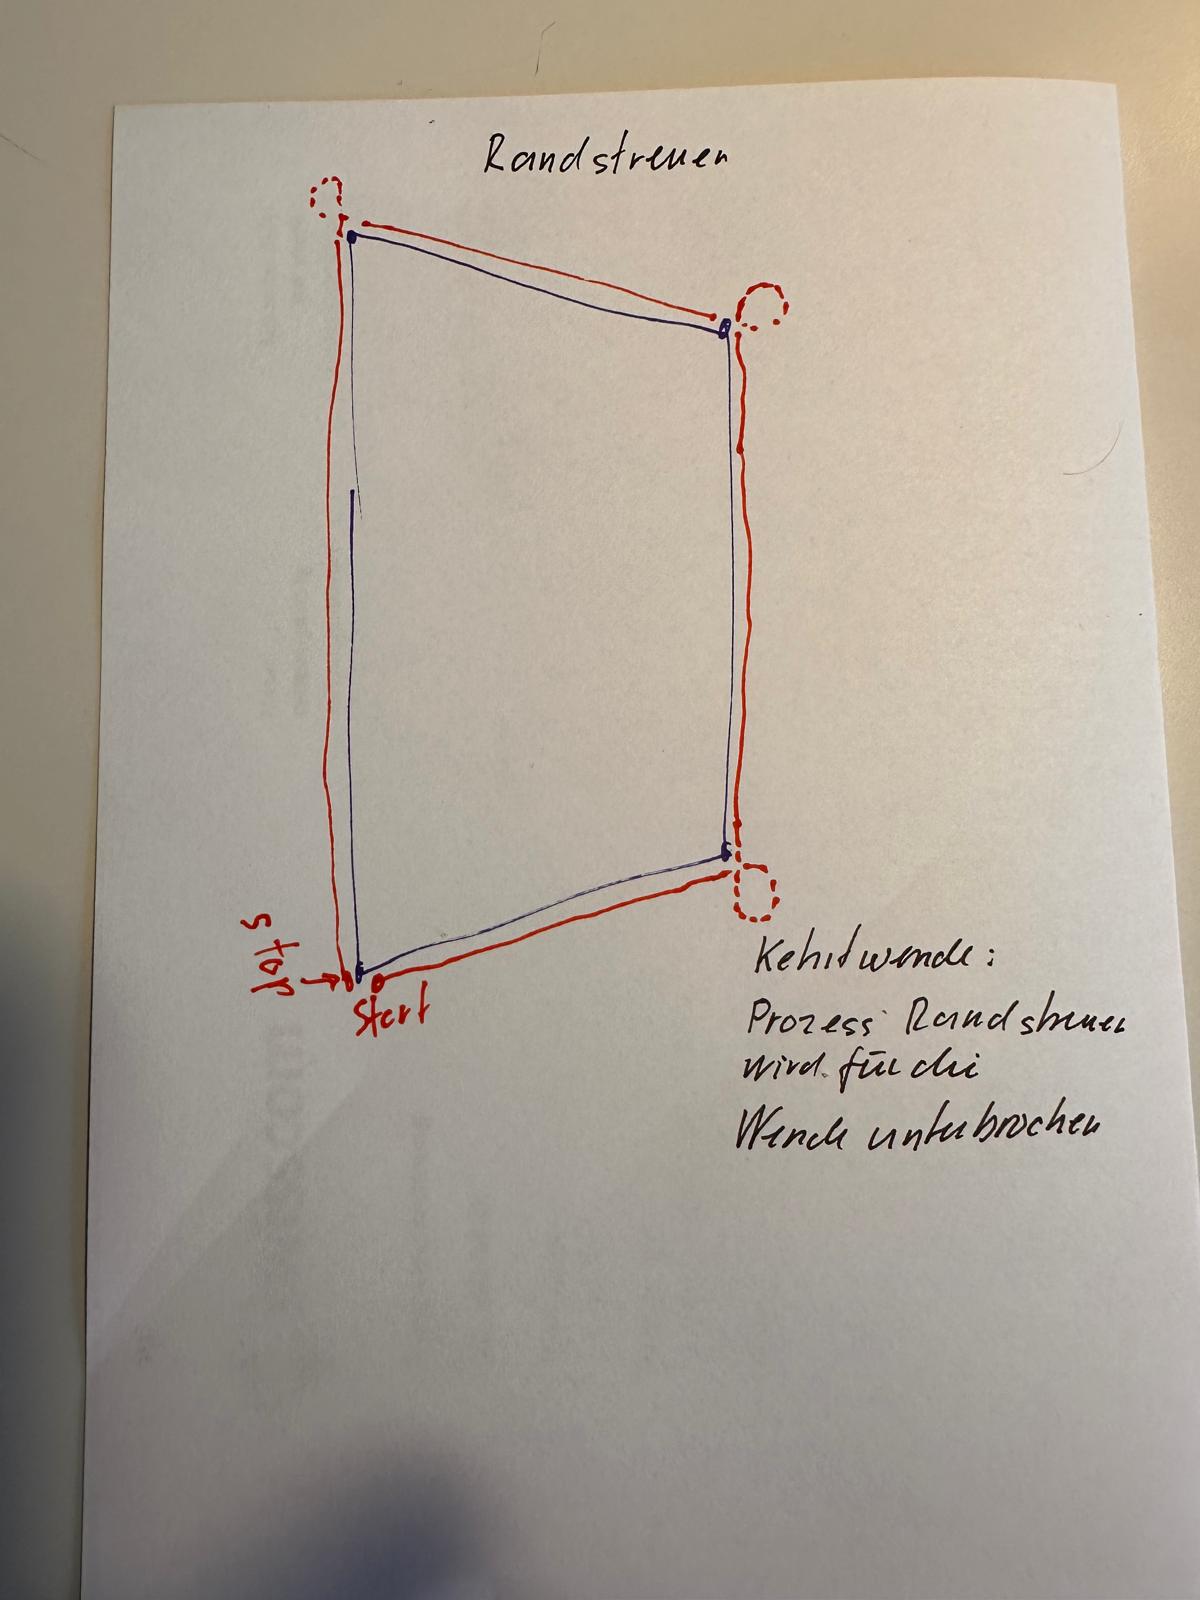 Randstreuen
Stop
Start
Kehrtwende:
Prozess Randstreuen
wird für die
Wende unterbrochen